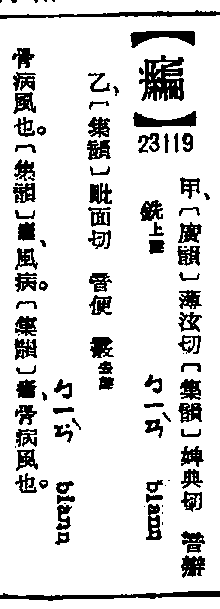 23119
甲、〔廣韻〕薄泫切〔集韻〕婢典切 音辮
銑上聲 ㄅㄧㄢˋ biann
乙、〔集韻〕毗面切 音便 霰去聲
ㄅㄧㄢˋ biann
骨病風也。〔集韻〕、風病。〔集韻〕、骨病風也。